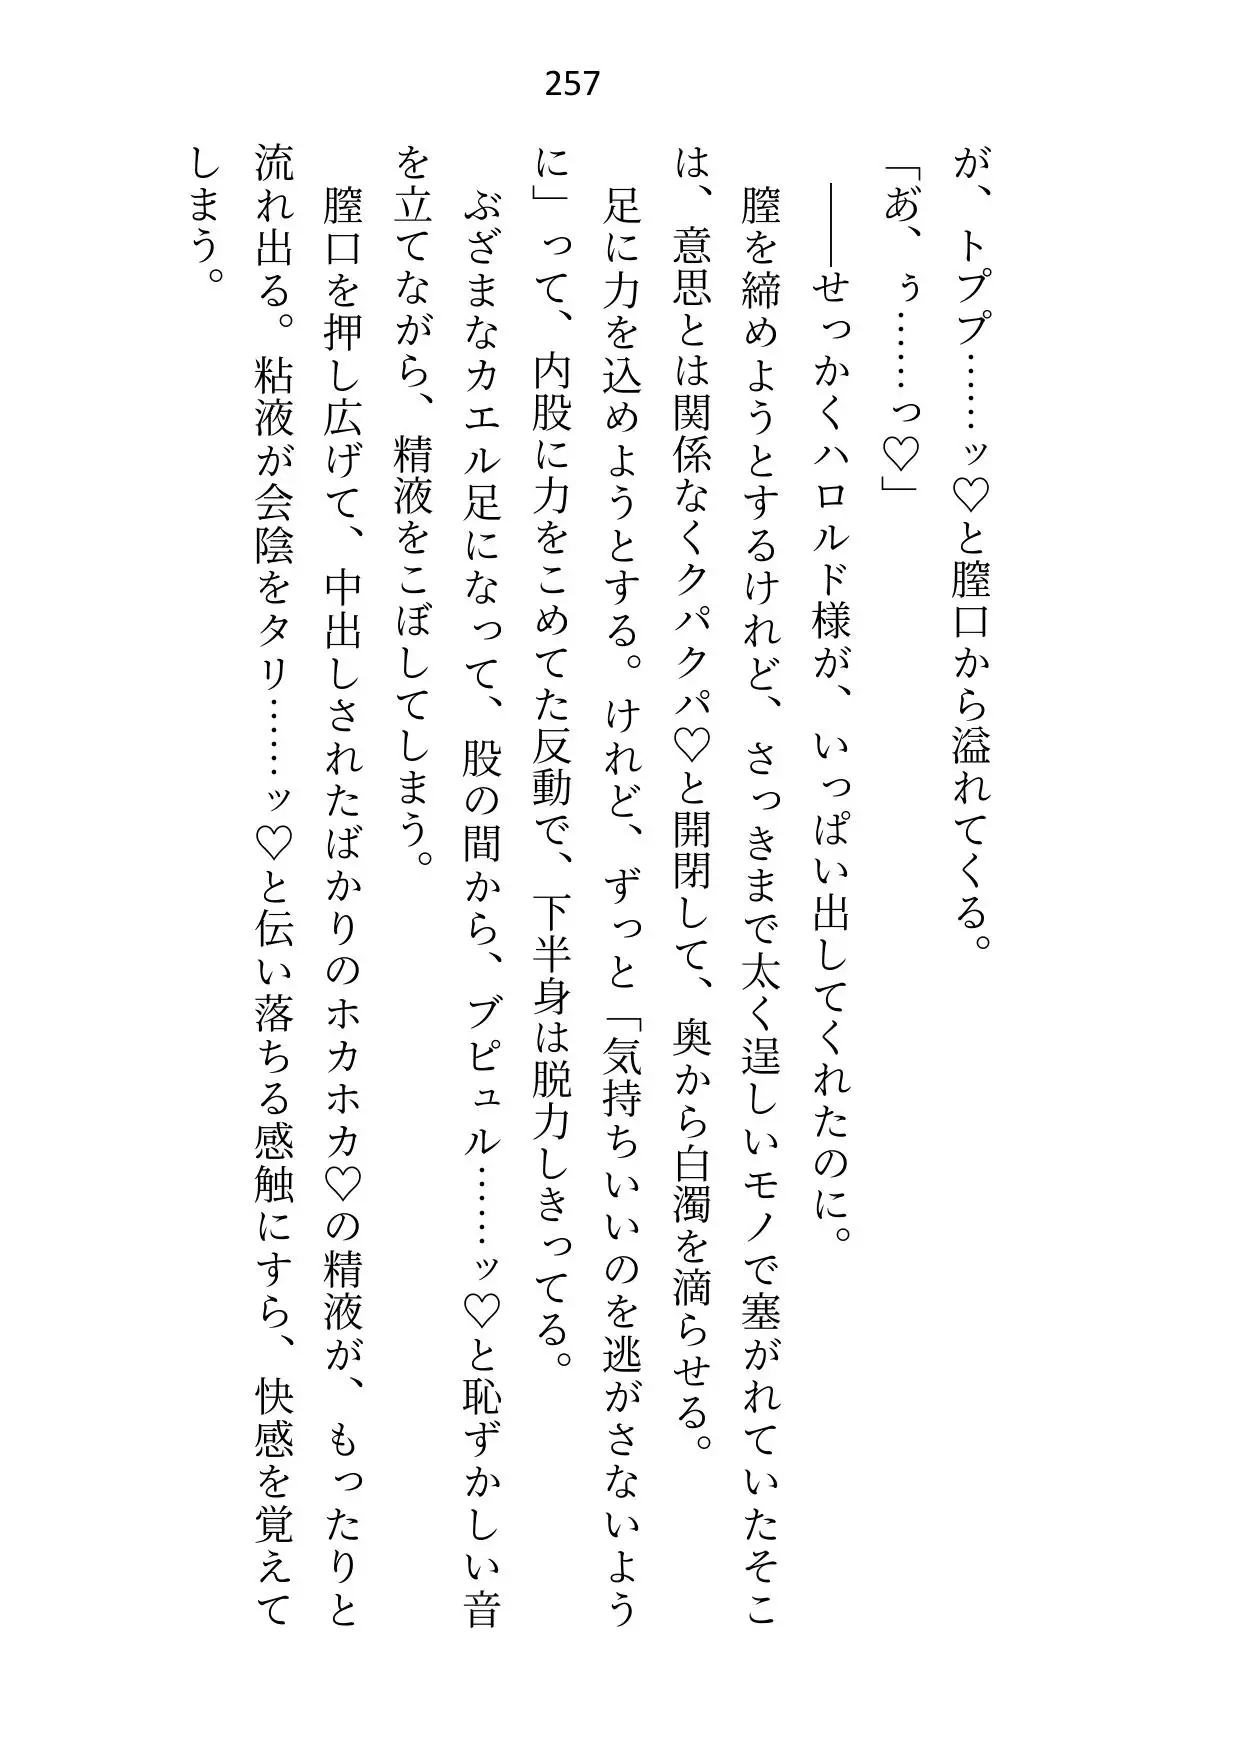 257
が、トププ……ッ♡と膣口から溢れてくる。
「あ゙、ぅ……っ♡」
――せっかくハロルド様が、いっぱい出してくれたのに。
膣を締めようとするけれど、さっきまで太く逞しいモノで塞がれていたそこ
は、意思とは関係なくクパクパ♡と開閉して、奥から白濁を滴らせる。
足に力を込めようとする。けれど、ずっと「気持ちいいのを逃がさないよう
に」って、内股に力をこめてた反動で、下半身は脱力しきってる。
ぶざまなカエル足になって、股の間から、ブピュル……ッ♡と恥ずかしい音
を立てながら、精液をこぼしてしまう。
膣口を押し広げて、中出しされたばかりのホカホカ♡の精液が、もったりと
流れ出る。粘液が会陰をタリ……ッ♡と伝い落ちる感触にすら、快感を覚えて
しまう。